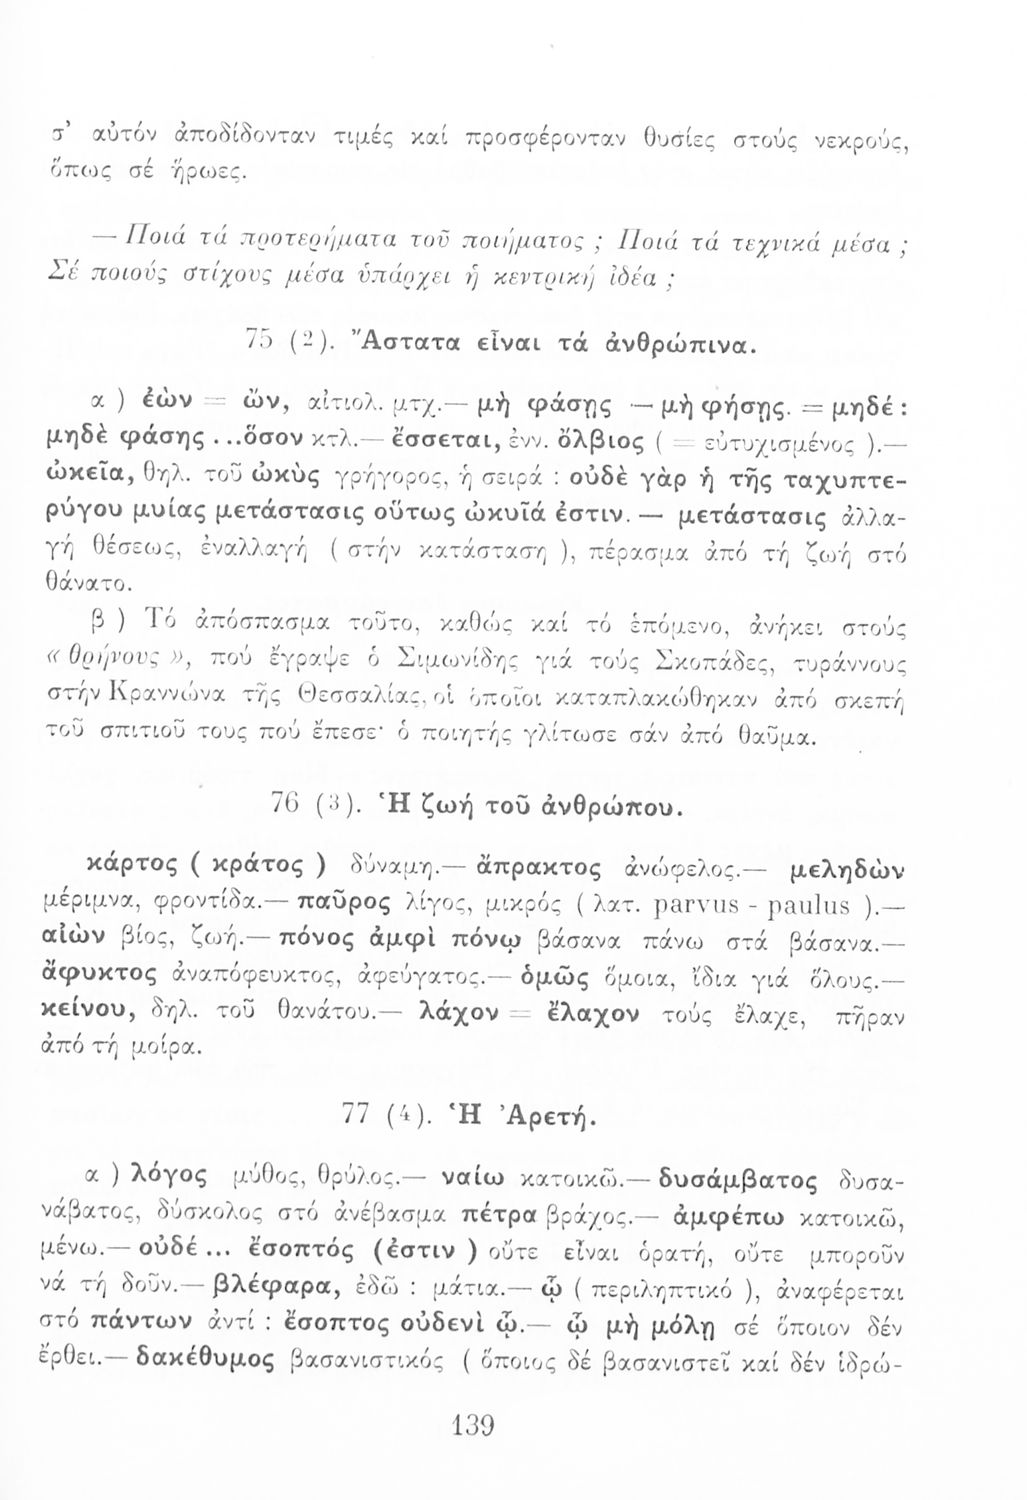 σ’ αὐτόν ἀποδίδονταν τιμές καί προσφέρονταν θυσίες στούς νεκρούς,
ὅπως σέ ἥρωες.
— Ποιά τά προτερήματα τοῦ ποιήματος ; Ποιά τά τεχνικά μέσα ;
Σέ ποιούς στίχους μέσα ὑπάρχει ἡ κεντρική ἰδέα ;
75 (2). Ἄστατα εἶναι τά ἀνθρώπινα.
α ) ἐὼν = ὤν, αἰτιολ. μτχ.— μὴ φάσῃς — μὴ φήσῃς. = μηδέ :
μηδὲ φάσης ...ὅσον κτλ.— ἔσσεται, ἐνν. ὄλβιος ( = εὐτυχισμένος ).—
ὠκεῖα, θηλ. τοῦ ὠκὺς γρήγορος, ἡ σειρά : οὐδὲ γὰρ ἡ τῆς ταχυπτε-
ρύγου μυίας μετάστασις οὕτως ὠκυῖά ἐστιν. — μετάστασις ἀλλα-
γή θέσεως, ἐναλλαγή ( στήν κατάσταση ), πέρασμα ἀπό τή ζωή στό
θάνατο.
β ) Τό ἀπόσπασμα τοῦτο, καθώς καί τό ἑπόμενο, ἀνήκει στούς
« θρήνους », πού ἔγραψε ὁ Σιμωνίδης γιά τούς Σκοπάδες, τυράννους
στήν Κραννώνα τῆς Θεσσαλίας, οἱ ὁποῖοι καταπλακώθηκαν ἀπό σκεπή
τοῦ σπιτιοῦ τους πού ἔπεσε· ὁ ποιητής γλίτωσε σάν ἀπό θαῦμα.
76 (3). Ἡ ζωή τοῦ ἀνθρώπου.
κάρτος ( κράτος ) δύναμη.— ἄπρακτος ἀνώφελος.— μεληδὼν
μέριμνα, φροντίδα.— παῦρος λίγος, μικρός ( λατ. parvus - paulus ).—
αἰὼν βίος, ζωή.— πόνος ἀμφὶ πόνῳ βάσανα πάνω στά βάσανα.—
ἄφυκτος ἀναπόφευκτος, ἀφεύγατος.— ὁμῶς ὅμοια, ἴδια γιά ὅλους.—
κείνου, δηλ. τοῦ θανάτου.— λάχον = ἔλαχον τούς ἔλαχε, πῆραν
ἀπό τή μοίρα.
77 (4). Ἡ Ἀρετή.
α ) λόγος μύθος, θρύλος.— ναίω κατοικῶ.— δυσάμβατος δυσα-
νάβατος, δύσκολος στό ἀνέβασμα πέτρα βράχος.— ἀμφέπω κατοικῶ,
μένω.— οὐδέ ... ἔσοπτός (ἐστιν ) οὔτε εἶναι ὁρατή, οὔτε μποροῦν
νά τή δοῦν.— βλέφαρα, ἐδῶ : μάτια.— ᾧ ( περιληπτικό ), ἀναφέρεται
στό πάντων ἀντί : ἔσοπτος οὐδενὶ ᾧ.— ᾧ μὴ μόλῃ σέ ὅποιον δέν
ἔρθει.— δακέθυμος βασανιστικός ( ὅποιος δέ βασανιστεῖ καί δέν ἱδρώ-
139